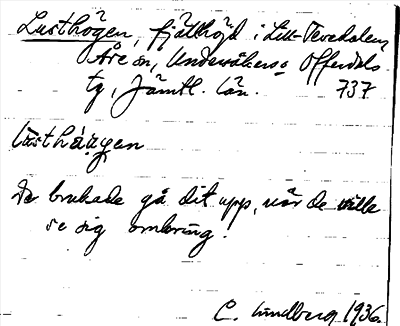 Lusthögen, fjällhöjd i Lill-Tevedalen,
Åre sn, Undersåkers o Offerdals
tg, Jämtl. län. 737
lùsthǻ̀ɡen
De brukade gå dit upp, när de ville
se sig omkring.
C. Lindberg 1936.